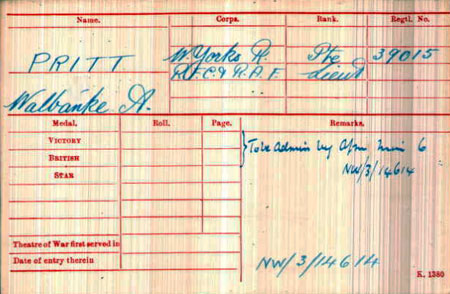 Name. Corps. Rank. Regtl. No.
PRITT W. Yorks R. Pte 39015
R.F.C. & R.A.F. Lieut
Walbanke A.
Medal. Roll. Page. Remarks.
VICTORY
BRITISH
STAR
To be Admin by Air Min 6
NW/3/14614
Theatre of War first served in
Date of entry therein
NW/3/14614
K. 1380